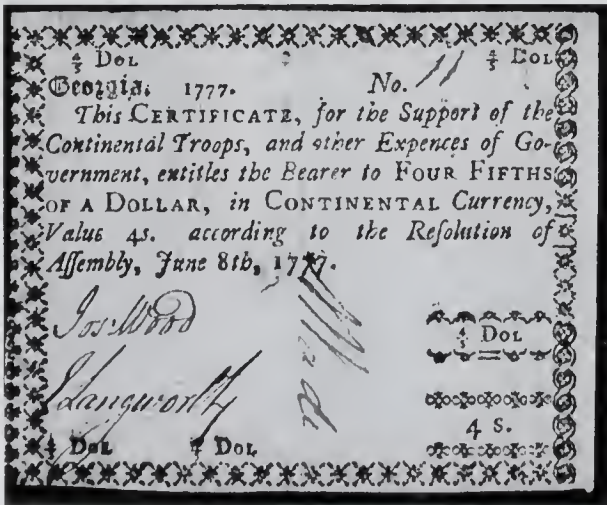 4/5 Dol 4/5 Dol
Georgia, 1777. No. 11
This CERTIFICATE, for the Support of the
Continental Troops, and other Expences of Go-
vernment, entitles the Bearer to FOUR FIFTHS
OF A DOLLAR, in CONTINENTAL Currency,
Value 4s. according to the Reſolution of
Aſſembly, June 8th, 1777.
Jos. Wood
4/5 Dol
Langworthy
4 S.
4/5 Dol 4/5 Dol